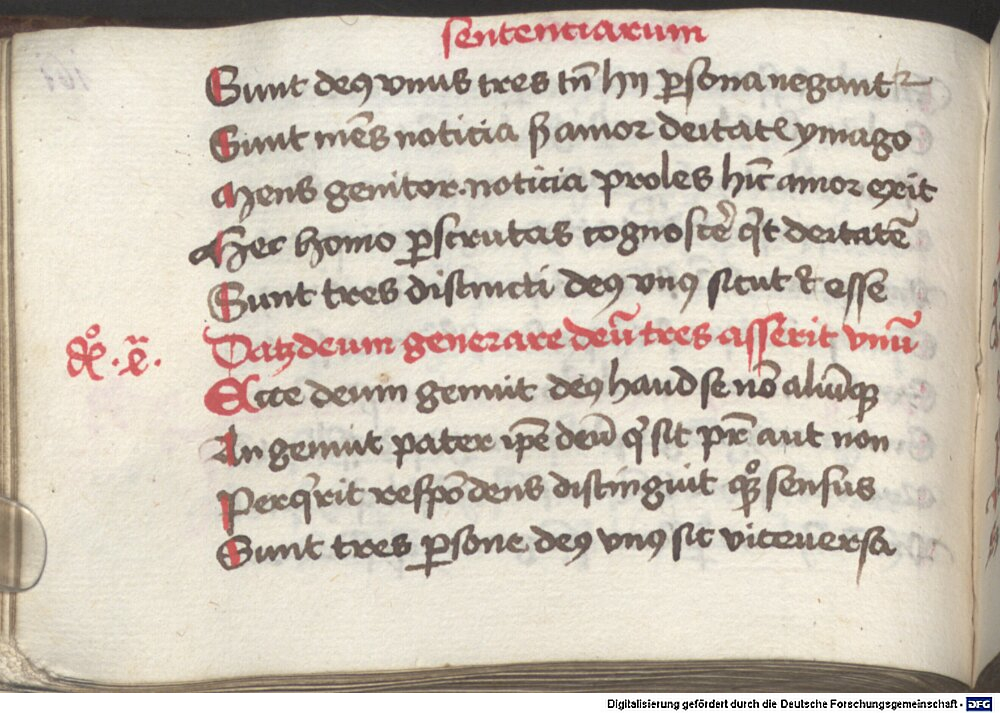 sentenciarum
Sunt deꝯ vnus tres tn̄ hij ꝑsona negantr
Sunt mēs noticia ẜ amor deitatꝭ ymago
Mens genitor noticia proles hīc amor exit
Hec homo ꝑscrutas cognoscē q̇t deitatē
Sunt tres distincti deꝯ vnꝯ sicut et esse
Datꝫ deum generare deū tres asserit vnū
Ecce deum genuit deꝯ haud se nō aliūqꝫ
An genuit pater ip̄e deū qͥ sit pr̄ aut non
Perqͥrit respōdens distinguit qͦꝫ sensus
Sunt tres ꝑsone deꝯ vnꝯ sit viceuersa
Digitalisierung gefördert durch die Deutsche Forschungsgemeinschaft - DFG